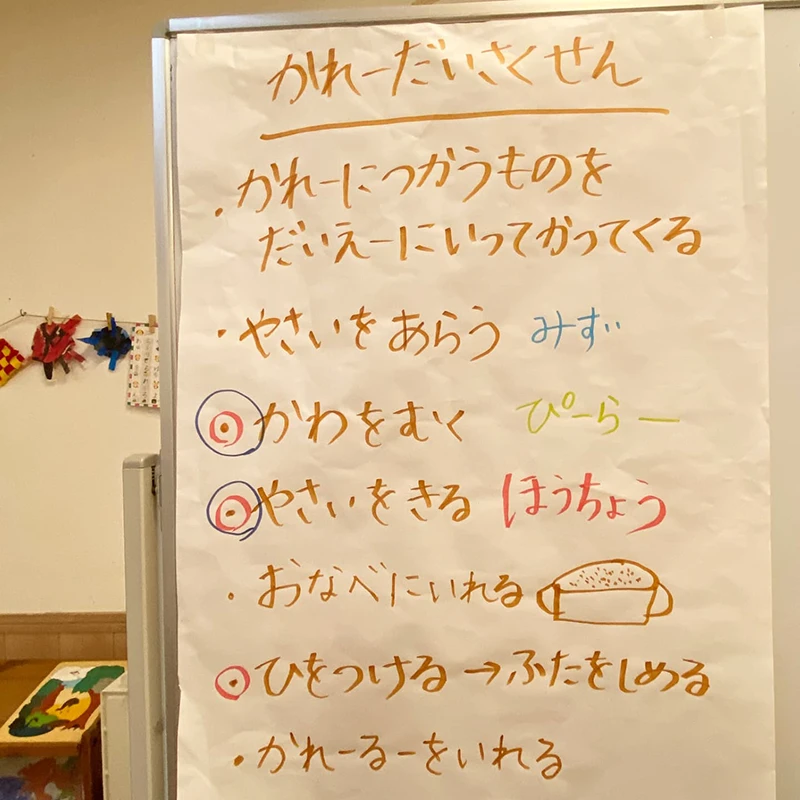 かれーだいさくせん
・かれーにつかうものを
だいえーにいってかってくる
・やさいをあらう みず
・かわをむく ぴーらー
・やさいをきる ほうちょう
・おなべにいれる
・ひをつける→ふたをしめる
・かれーるーをいれる